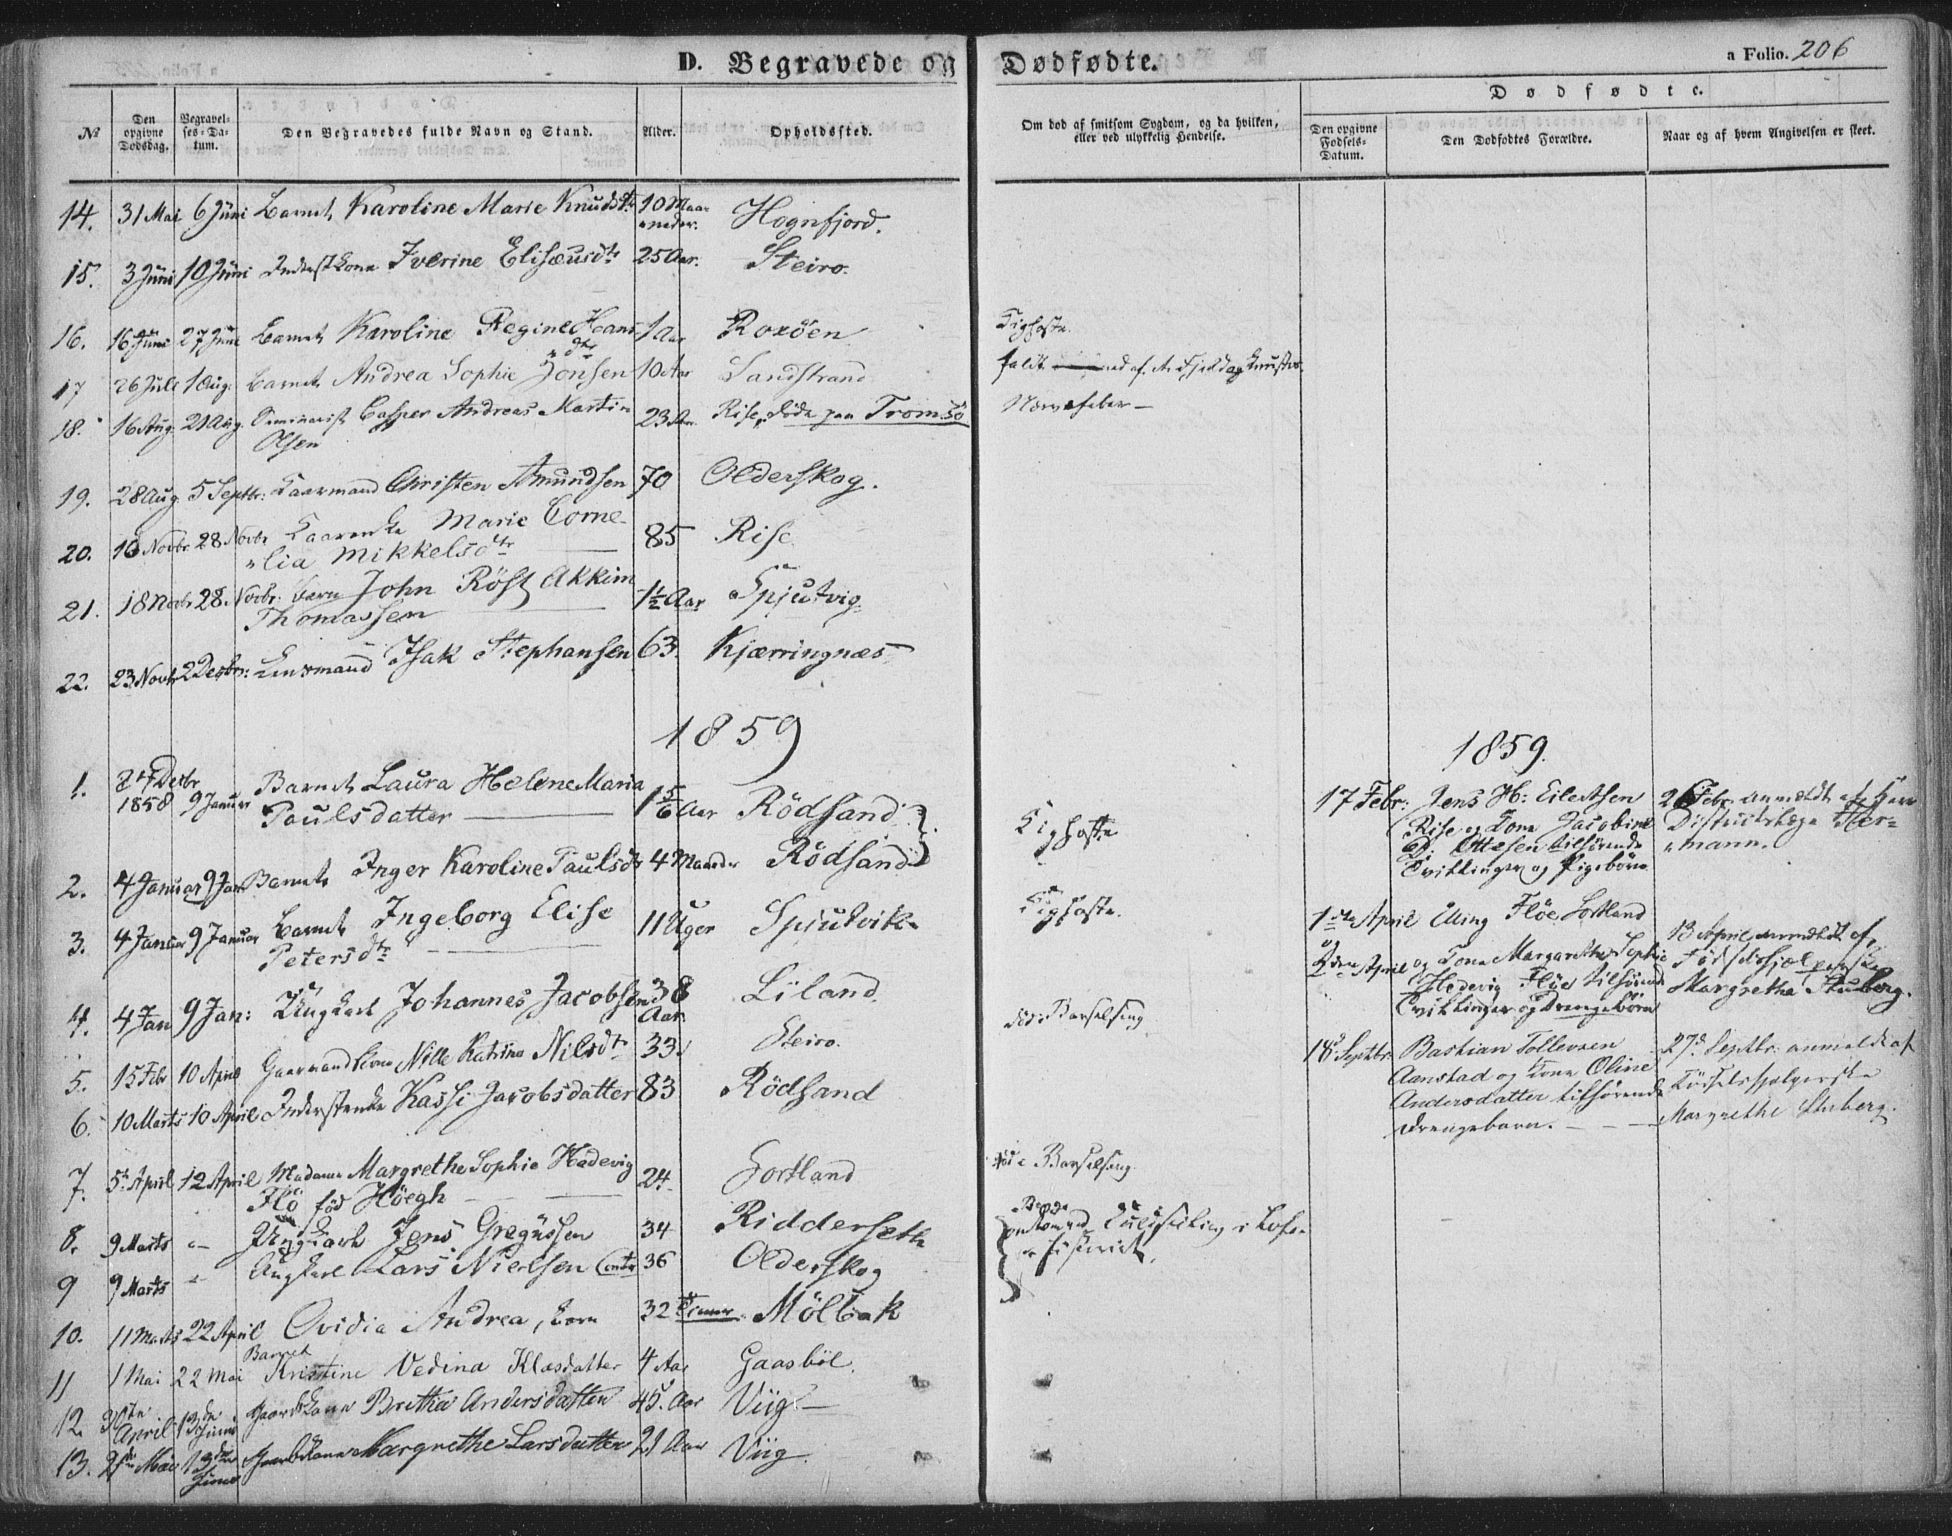 D. Begravede og Dødfødte.
a Folio. 206
Dødfødte.
№
Den opgivne Dødsdag.
Begravelses-Datum.
Den Begravedes fulde Navn og Stand.
Alder.
Opholdssted.
Om død af smitsom Sygdom, og da hvilken, eller ved ulykkelig Hendelse.
Den opgivne Fødsels-Datum.
Den Dødfødtes Forældre.
Naar og af hvem Angivelsen er skeet.
14. 31 Mai 6 Juni Barnet Karoline Marie Knudsdtr 10 Maaneder. Hognfjord.
15. 3 Juni 10 Juni Inderstkone Iverine Elisæusdtr 25 Aar. Steiro.
16. 16 Juni 27 Juni Barnet Karoline Regine Hansdtr 1 Aar Roxöen Kighoste.
17 26 Juli 1 Aug. Barnet Andrea Sophie Jonsen 10 Aar Sandstrand faldt ned af et Fjeld og knustes.
18. 16 Aug. 21 Aug. Seminarist Casper Andreas Martin
Olsen 23 Aar Rise, døde paa Tromsö Nervefeber —
19. 28 Aug. 5 Septbr: Kaarmand Christen Amundsen 70 Olderskog.
20. 18 Novbr 28 Novbr Kaarenke Marie Corne-
lia Mikkelsdtr 85 Rise
21. 18 Novbr 28. Novbr. barn John Röst Akkim
Thomassen 1½ Aar Spjutvig.
22. 23 Novbr 2 Decbr: Lensmand Isak Stephansen 63. Kjærringnæs
1859
1859.
1. 27 Decbr
1858 9 Januar Barnet Laura Helene Maria
Paulsdatter 1 5/6 Aar Rödsand
2. 4 Januar 9 Jan Barnet Inger Karoline Paulsdtr 4 Maaneder Rödsand Kighoste
3. 4 Januar 9 Januar Barnet Ingeborg Elise
Petersdtr 11 Uger Spjutvik Kighoste.
4. 4 Jan 9 Jan: Ungkarl Johannes Jacobsen 38
Aar. Liland
5. 15 Febr 10 April Gaarmandskone Nille Katrina Nilsdtr 33 Steiro. død i Barselseng
6. 10 Marts 10 April Inderstenke Kassi Jacobsdatter 83 Rödsand
7. 5 April 12 April Madame Margrethe Sophie Hedevig
Flö född Höegh 24 Sortland død i Barselseng
8. 9 Marts „ Ungkarl Jens Gregussen 34 Ridderseth
9 9 Marts „ Ungkarl Lars Nielsen 36 Olderskog
Begge omkomne ved Kuldseiling i Lofo-
10. 11 Marts 22 April Ovidia Andrea, barn 32 Timer Mölbak
11 1 Mai 22 Mai Barnet
Kristine Vedina Klasdatter 4 Aar Gaasböl
12. 30te April 13de Juni Gaardkone Bretha Andersdatter 45 Aar Viig —
13. 2den Mai 13de Juni Gaardkone Margrethe Larsdatter 21 Aar Viig.
17 Febr: Jens H: Eilertsen
Rise og Kone Jacobine
D. Ottesen tilhörende
Tvillinger og Pigebörn
26 Febr. anmeldt af Herr
Districtslæge Her-
mann.
1ste April Elling Flöe Sortland
2den April og Kone Margarethe Sophie
Hedevig Flöe tilhörende
Tvillinger og Drengebörn
13 April anmeldt af
Födselshjælperske
Margretha Stuberg.
18 Septbr. Bastian Tollevsen
Aanstad og Kone Oline
Andersdatter tilhörende
Drengebarn.
27 Septbr. anmeldt af
Födselshjælperske
Margrethe Stuberg.